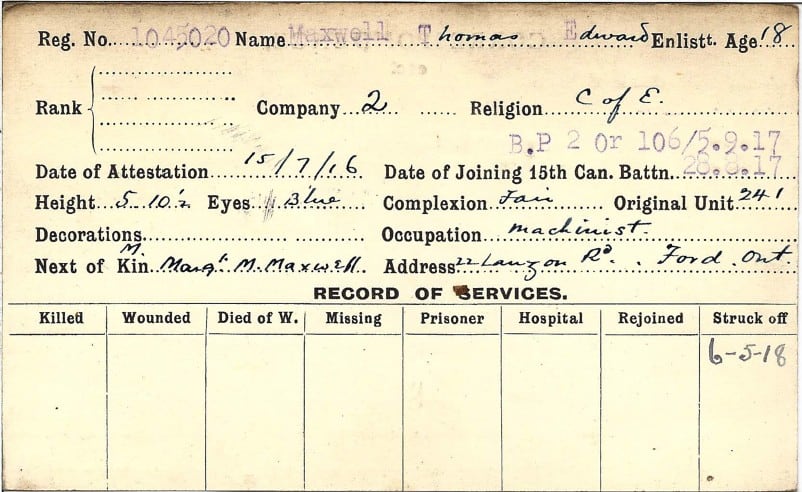 Reg. No. 1045020 Name Maxwell Thomas Edward Enlistt. Age 18
Rank Company 2 Religion C of E.
B.P 2 Or 106/5.9.17
Date of Attestation 15/7/16 Date of Joining 15th Can. Battn. 28.8.17
Height 5-10½ Eyes Blue Complexion Fair Original Unit 241
Decorations Occupation machinist.
M.
Next of Kin Margt. M. Maxwell. Address 22 Lauzon Rd. Ford. Ont
RECORD OF SERVICES.
Killed Wounded Died of W. Missing Prisoner Hospital Rejoined Struck off
6-5-18